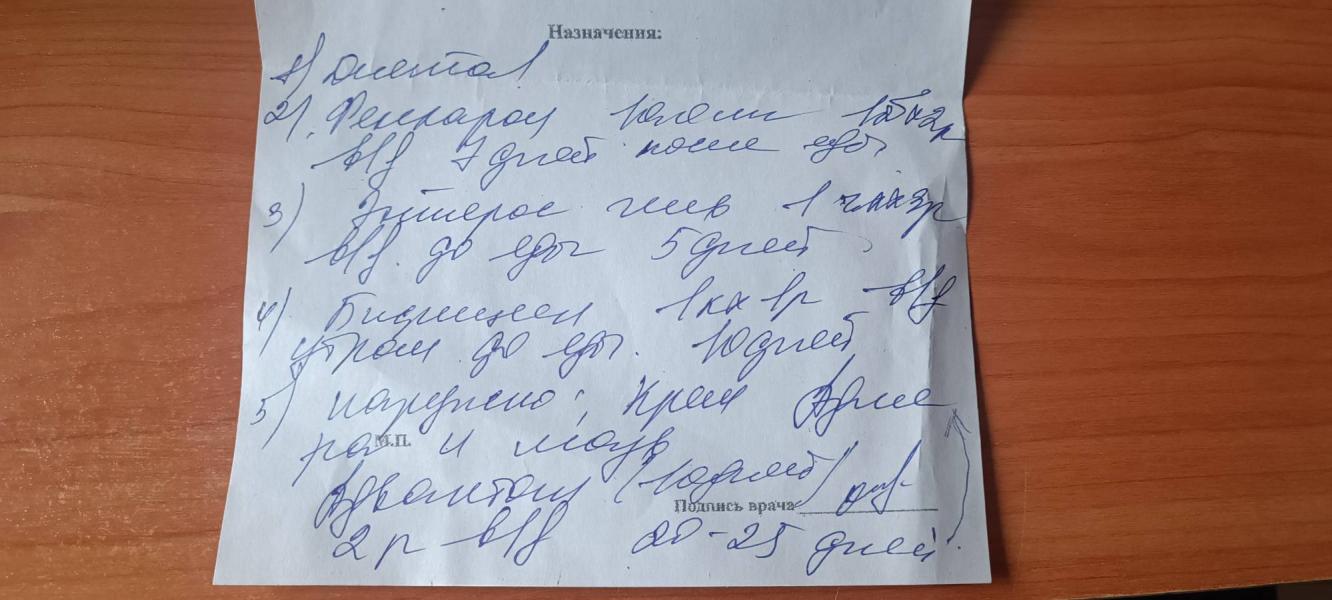 Назначения:
1) Диета
2). Фенкарол 10мг 1т х 2р
в/д 7 дней после еды
3) Энтерос гель 1 ч л х 3р
в/д. до еды 5 дней
4) 1к х 1р в/д
утром до еды. 10 дней
5) наружно: Крем Адме
ра и мазь
М.П.
Адвантан (10 дней)
Подпись врача
2 р в/д 20-25 дней.